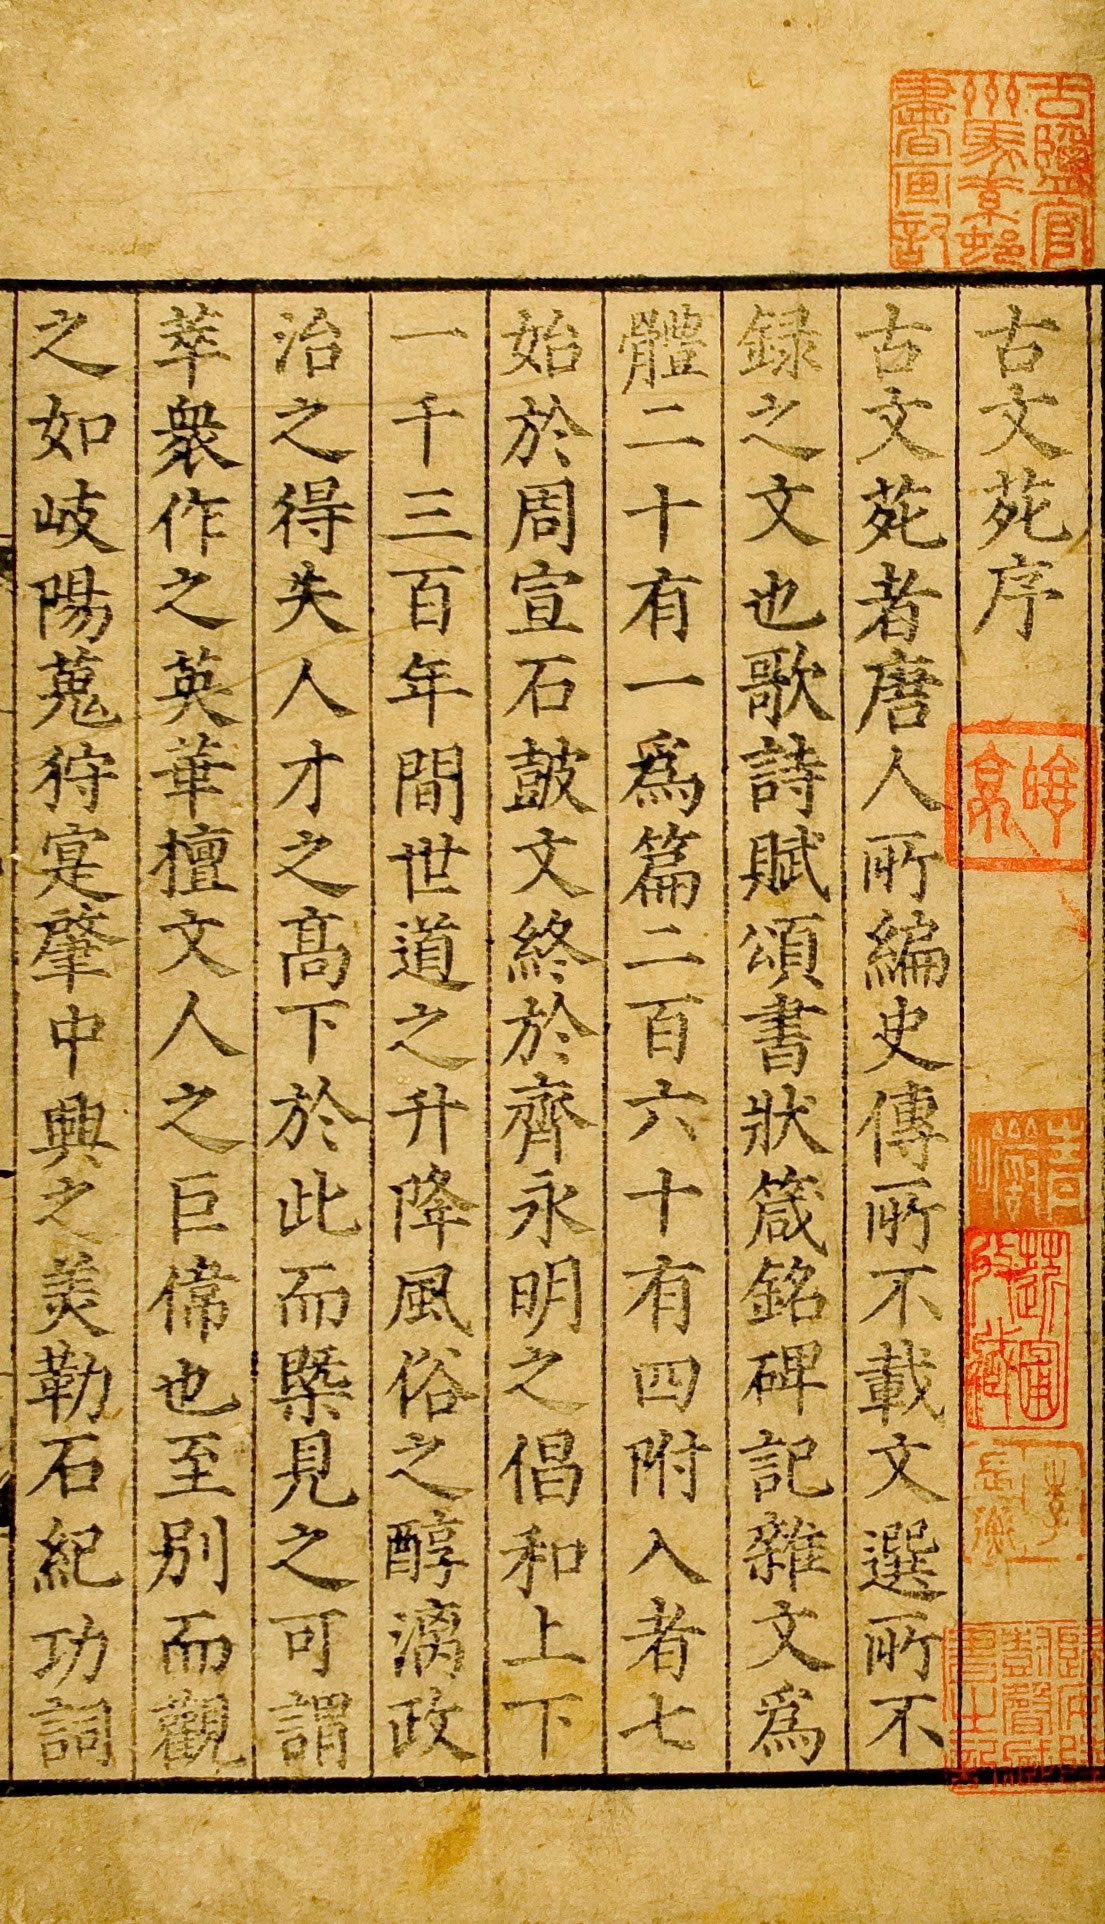 古文苑序
古文苑者唐人所編史傳所不載文選所不
録之文也歌詩賦頌書狀箴銘碑記雜文爲
體二十有一爲篇二百六十有四附入者七
始於周宣石鼓文終於齊永明之倡和上下
一千三百年間世道之升降風俗之醇漓政
治之得失人才之髙下於此而槩見之可謂
萃衆作之英華擅文人之巨偉也至别而觀
之如岐陽蒐狩寔肇中興之羙勒石紀功詞
古鹽官
州馬寒中
書畫記